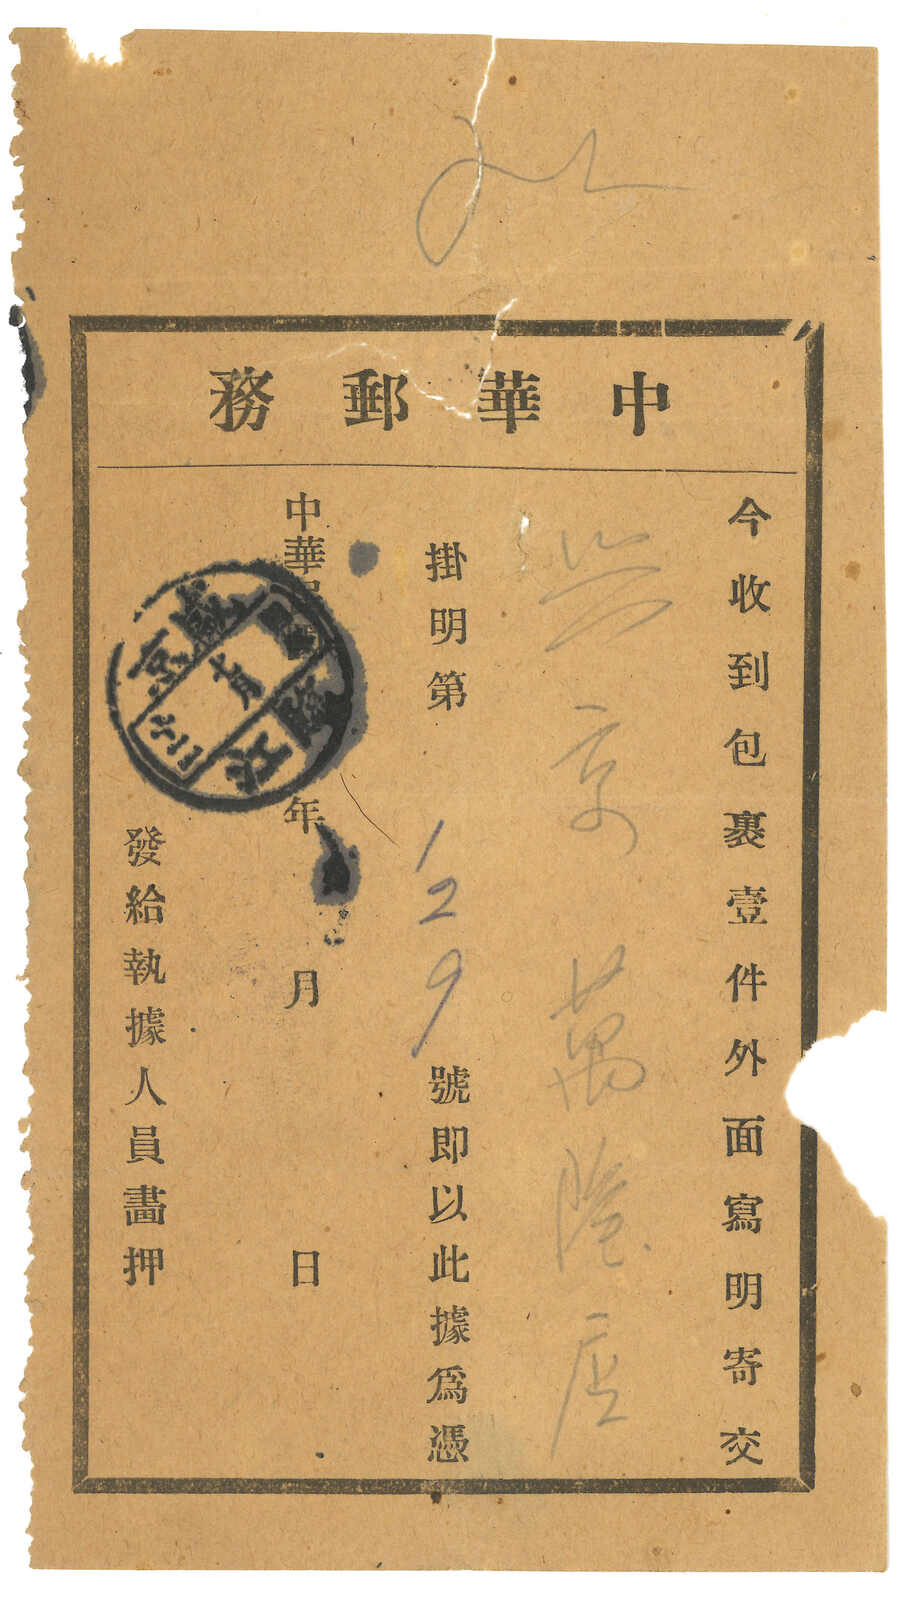 中華郵務
今收到包裹壹件外面寫明寄交
京萬隆店
掛明第129號即以此據爲憑
中華年月日
發給執據人員畵押